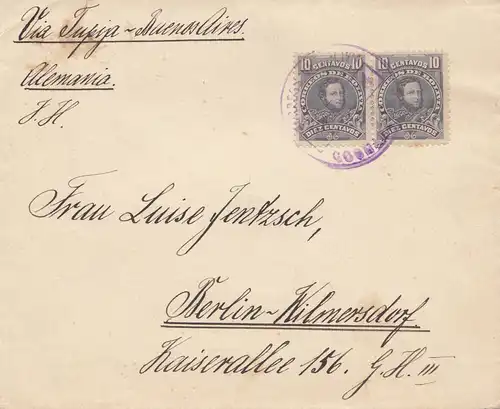 Via Tupiza - Buenos Aires.
Alemania.
J. H.
10 CENTAVOS 10
CORREOS DE BOLIVIA
DIEZ CENTAVOS
10 CENTAVOS 10
CORREOS DE BOLIVIA
DIEZ CENTAVOS
Frau Luise Jentzsch,
Berlin-Wilmersdorf.
Kaiserallee 156. G. H. III